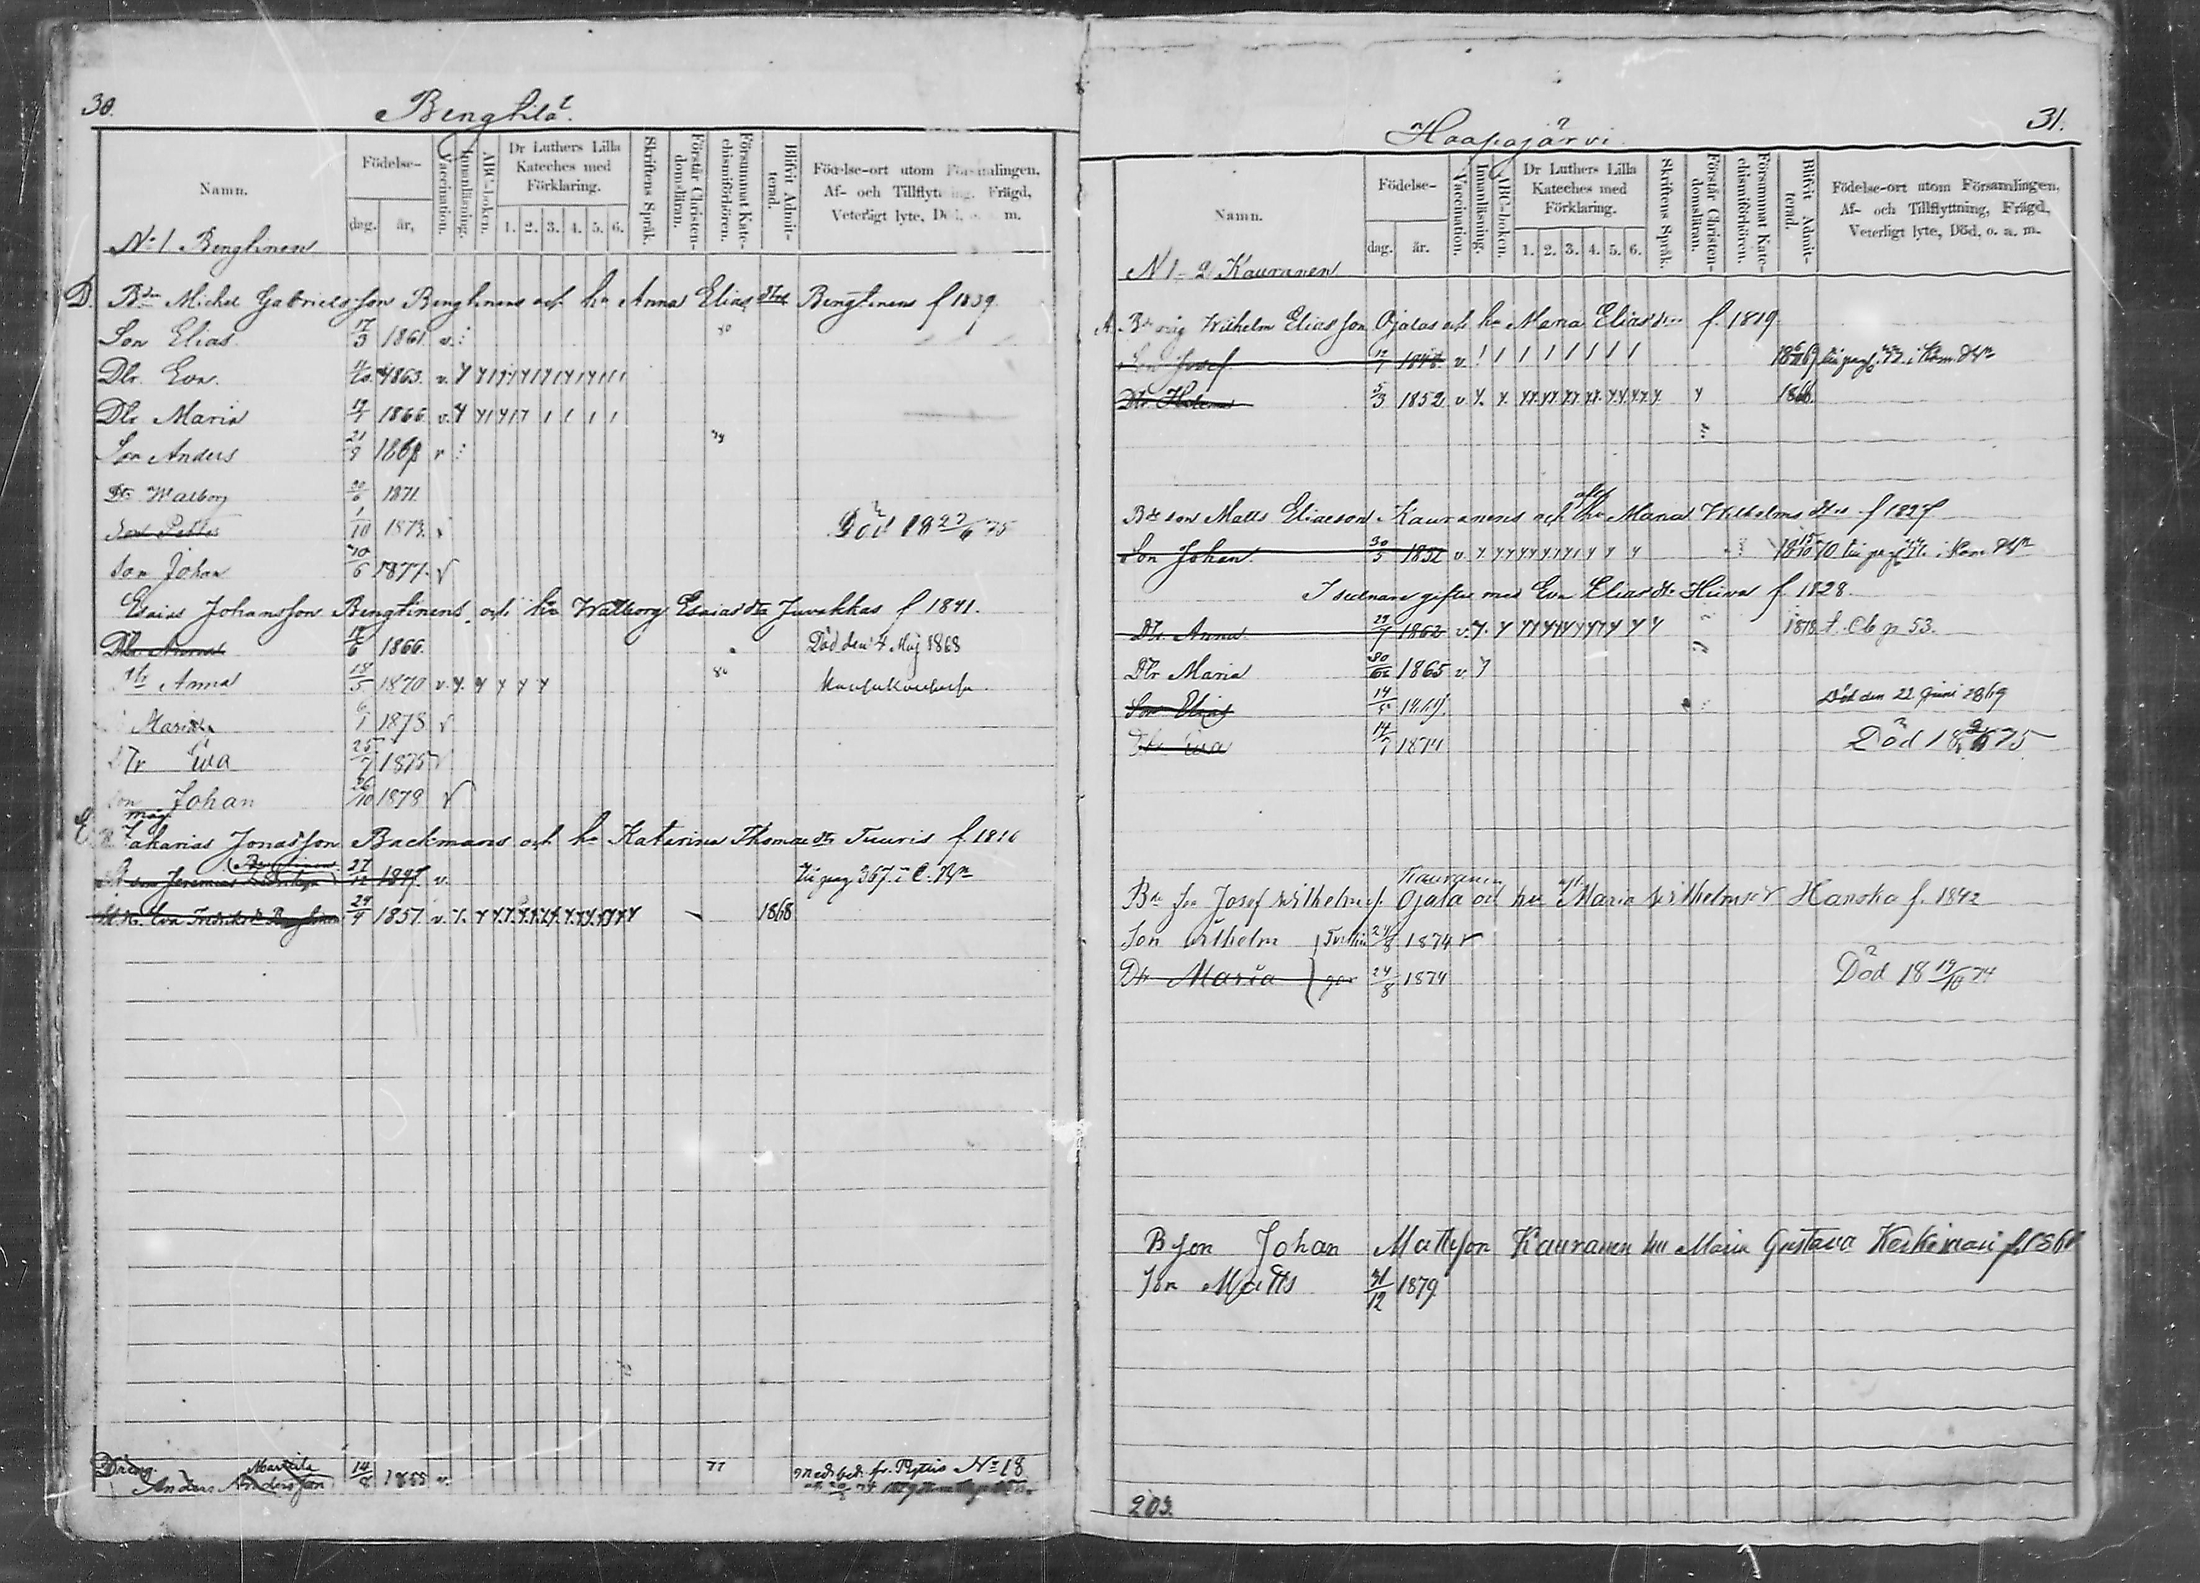 30.
Benghila
Namn.
Födelse-
dag. år,
Vaccination.
Innanläsning.
ABC-boken.
Dr Luthers Lilla Kateches med Förklaring.
1. 2. 3. 4. 5. 6.
Skriftens Språk.
Förstår Christendomsläran.
Försummat Katechismiförhören.
Blifvit Admitterad.
Födelse-ort utom Församlingen, Af- och Tillflyttning, Frägd, Veterligt lyte, Död, o. a. m.
No 1. Benghinen
D. Bdn Michel Gabrielsson Benghinens och hu Anna Elias dter Benghinens f 1839.
Son Elias 17/3 1861. v.
Dtr. Eva 1863. v.
Dtr Maria 19/7 1866 v.
Son Anders 21/9 1868 v
Dtr Walborg 20/6 1871.
Son Petter 1/10 1873. Död 18 27/6 75
Son Johan 10/6 1877. v
Esaias Johansson Benghinens och hu Walborg Esaiasdtr Juvakkas f 1841.
Dtr Anna 6 1866. Död den 4 Maj 1868
dtr Anna 18/5 1870 v.
Maria 6/1 1873 v
dTr Ewa 25/7 1875 v
Son Johan 26/10 1878 v
E. måg Zakarias Jonasson Backmans och hu Katarina Thomasdtr Tuuris f. 1816
son Jeremias 27/12 1847. v. till pag 367. i C. Bkn
Eva Fredriksdr Benghinen 24/9 1851. v. 1868
Dräng Anders Andersson Marttila 14/8 1855 v. 77 med bet. fr. Pyttis No 18
31.
Haapajärvi
Namn.
Födelse-
dag. år.
Vaccination.
Innanläsning.
ABC-boken.
Dr Luthers Lilla Kateches med Förklaring.
1. 2. 3. 4. 5. 6.
Skriftens Språk.
Förstår Christendomsläran.
Försummat Katechismiförhören.
Blifvit Admitterad.
Födelse-ort utom Församlingen, Af- och Tillflyttning, Frägd, Veterligt lyte, Död, o. a. m.
N 1 - 2 Kauranen
A. Wilhelm Eliasson Ojalas och hu Maria Eliasdtr f. 1819.
Son Josef 12/7 1848. v.
Dtr Helena 5/3 1852 v 1868.
Bde son Matts Eliasson Kauranens och hu Maria Wilhelms dter f 1827
Son Johan 30/5 1852 v.
I sednare giftet med Eva Eliasdtr Hirva f. 1828.
Dtr Anna 29/7 1862 v. 1878 f. Cb p 53.
Dtr Maria 30 1865 v
Son Elias 14 1869. Död den 22 Juni 1869
Dtr Ewa 14/7 1874 Död 18 75
Kauranen
Bde son Josef Wilhelms. Ojala och hu Maria Wilhelmsdr Hanska f. 1842
Son Wilhelm Tvillin 24/8 1874 v
Dtr Maria gar 24/8 1874 Död 18 19/10 74
B Son Johan Mattsson Kauranen hu Maria Gustava
Son Matts 31/12 1879.
203.